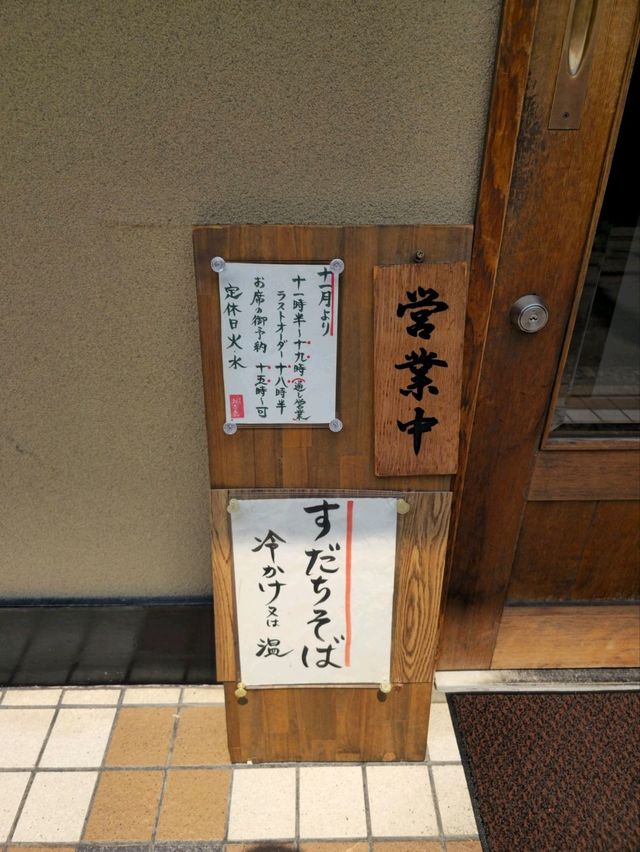 営業中
十一月より
十一時半〜十九時(通し営業)
ラストオーダー十八時半
お席の御予約 十五時〜可
定休日 火・水
すだちそば
冷かけ又は温